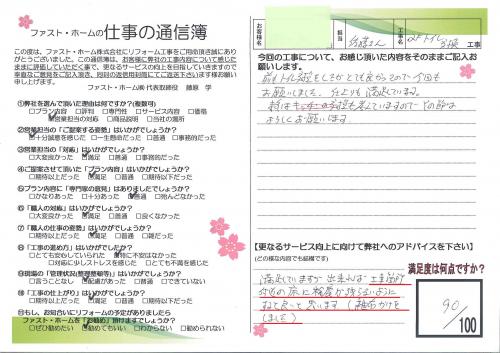 ファスト・ホームの仕事の通信簿
この度は、ファスト・ホーム株式会社にリフォーム工事をご用命頂き誠にあり
がとうございました。この通信簿は、お客様に弊社の工事内容について感じた
ままに評価していただく事で、更なるサービスの向上を目指していきますので
率直なご意見をご記入頂き、同封の返信用封筒にてご返送下さいます様お願い
申し上げます。
ファスト・ホーム㈱ 代表取締役 藤原 学
①弊社を選んで頂いた理由は何ですか?(複数可)
□プラン内容 □評判 □専門性 □サービス内容 □価格
□営業担当の対応 □商品説明 □当社の場所
②営業担当の「ご提案する姿勢」はいかがでしょうか?
□十分誠意を感じた □一生懸命だった □普通 □事務的だった
③営業担当の「対応」はいかがでしょうか?
□大変良かった □満足 □普通 □事務的だった
④ご提案させて頂いた「プラン内容」はいかがでしょうか?
□期待以上だった □満足 □普通 □期待以下だった
⑤プラン内容に「専門家の意見」はありましたでしょうか?
□かなりあった □十分あった □普通 □殆んどなかった
⑥「職人の対応」はいかがでしょうか?
□大変良かった □満足 □普通 □良くなかった
⑦「職人の仕事の姿勢」はいかがでしょうか?
□期待以上だった □満足 □普通 □雑だった
⑧「工事の進め方」はいかがでしたか?
□とても安心していられた □特に不安はなかった
□対応に少しストレスを感じた □とても不満を感じた
⑨現場の「管理状況(整理整頓等)」はいかがでしたか?
□言うことなし □配慮があった □普通 □できていない
⑩「工事の仕上がり」はいかがでしょうか?
□期待以上だった □満足 □普通 □期待以下だった
⑪もし、お知合いにリフォームの予定がありましたら
ファスト・ホームを「お勧め」頂けますでしょうか?
□ぜひ勧めたい □勧めてもいい □わからない □勧められない
お客様名
担当
工事
今回の工事について、お感じ頂いた内容をそのままご記入お
願いします。
お願いしました。仕上りも満足している。
よろしくお願いします
【更なるサービス向上に向けて弊社へのアドバイスを下さい】
(どの様な内容でも結構です)
満足していますが出来れば工事箇所
付近の床に
すると良いと思います(
しました)
満足度は何点ですか?
90
/100